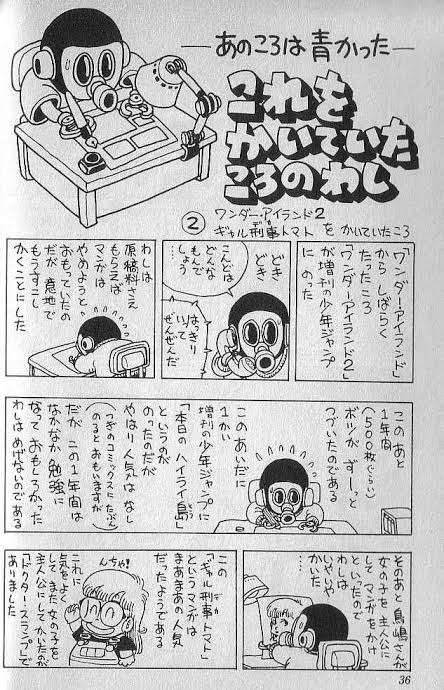 ―あのころは青かった―
これを
かいていた
ころのわし
② ワンダー・アイランド2
ギャル刑事トマト をかいていたころ
デカ
「ワンダー・アイランド」
から しばらく
たったころ
「ワンダー・アイランド2」
が増刊の少年ジャンプ
に のった
どき
どき
こんどは
どんな
もんで
しょう
……
はっきり
いって
ぜんぜんだ
わしは
原稿料さえ
もらえば
マンガは
やめようと
おもっていたの
だが 意地で
もうすこし
かくことにした
このあと
1年間
(500枚ぐらい)
ボツが ずーっと
つづいたのである
このあいだに
1かい
増刊の少年ジャンプに
「本日のハイライ島」
とう
というのが
のったのだが
やはり人気はなし
(つぎのコミックスにたぶん
のるとおもいますが)
だが この1年間は
なかなか 勉強に
なって おもしろかった
わしはめげないのである
そのあと 鳥嶋さんが
女の子を 主人公に
して マンガをかけ
といったので
わしは
いやいや
かいた
この
「ギャル刑事トマト」
デカ
というマンガは
まあまあの人気
だったようである
んちゃ!
これに
気をよくして
また女の子を
主人公にしてかいたのが
「ドクタースランプ」で
ありました
36